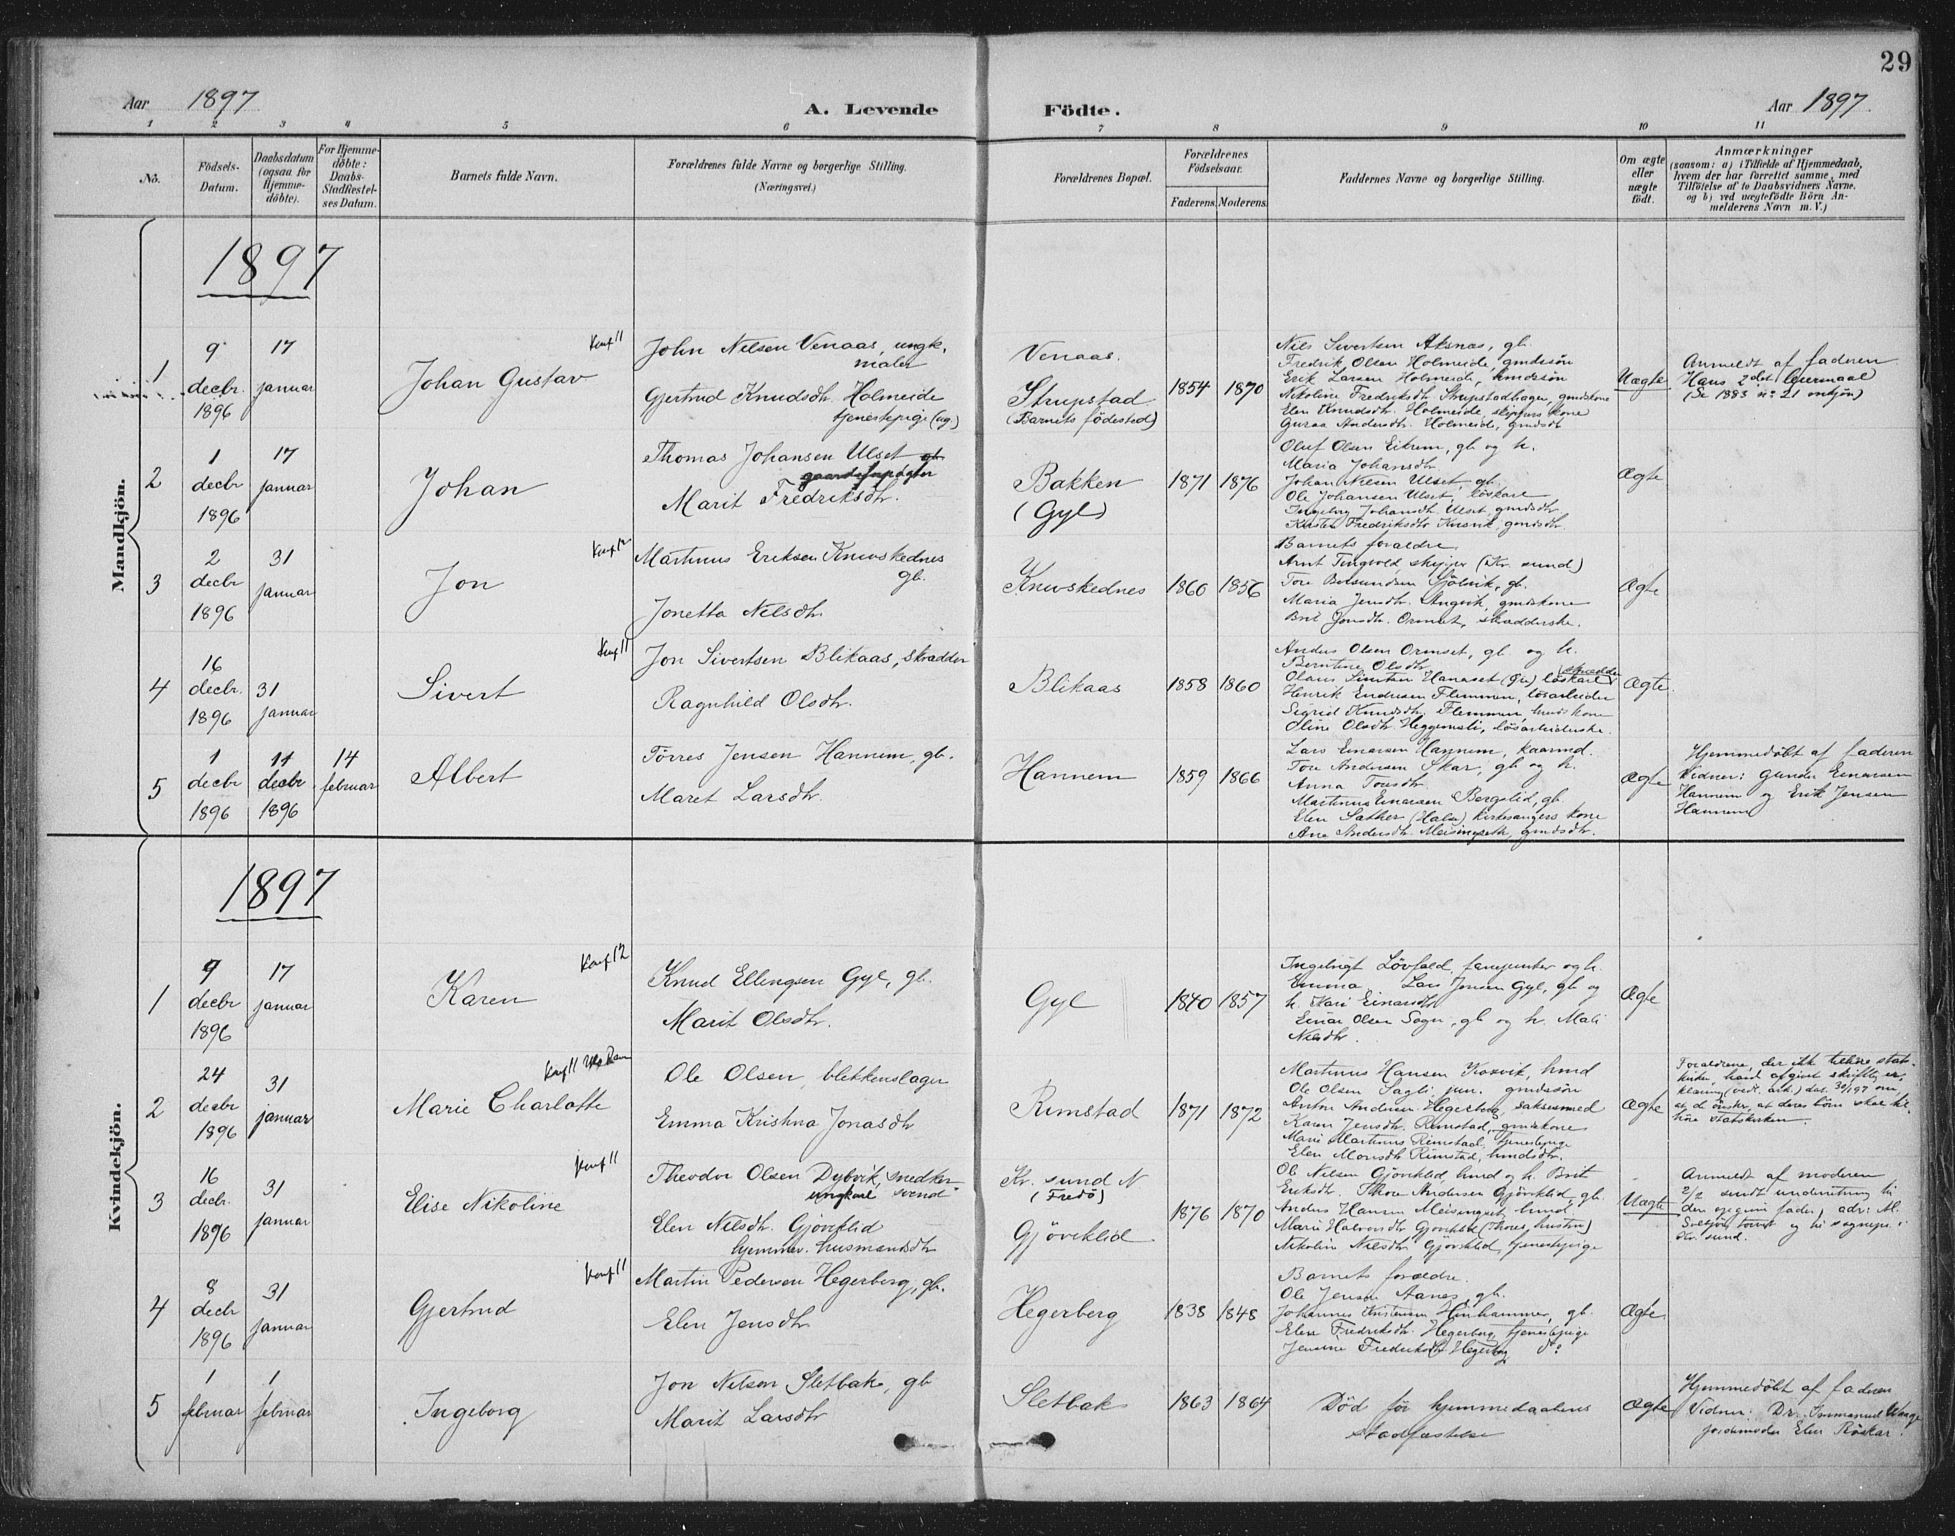 29
Aar 1897 A. Levende Födte. Aar 1897.
1 2 3 4 5 6 7 8 9 10 11
No.
Födsels-
Datum.
Daabsdatum
(ogsaa for
Hjemme-
döbte).
For Hjemme-
döbte:
Daabs-
Stadfæstel-
ses Datum.
Barnets fulde Navn.
Forældrenes fulde Navne og borgerlige Stilling.
(Næringsvei.)
Forældrenes Bopæl.
Forældrenes
Födselsaar.
Faderens. Moderens.
Faddernes Navne og borgerlige Stilling.
Om ægte
eller
uægte
födt.
Anmærkninger
(saasom: a) i Tilfælde af Hjemmedaab,
hvem der har forrettet samme, med
Tilföielse af to Daabsvidners Navne.
og b) ved uægtefödte Börn An-
melderens Navn m. V.)
Mandkjön.
1897
1
9
decbr.
1896
17
januar
Konf 11
Johan Gustav
John Nelsen Venaas, ungk.
maler
Gjertrud Knudsdtr. Holmeide
tjenestepige (ug)
Venaas.
Strupstad
(Barnets födested)
1854 1870
Niels Sivertsen Aksnæs, gb.
Fredrik Olsen Holmeide, gmdssön
Erik Larsen Holmeide, hmdssön
Nikoline Fredriksdtr. Strupstadhagen, gmdskone
Elen Knudsdtr. Holmeide, skippers kone
Guraa Andersdtr. Holmeide, gmdsdtr
Uægte
Anmeldt af faderen
Hans 2det leiermaal
(Se 1883 no 21 mkjön)
2
1
decbr
1896
17
januar
Johan
Thomas Johansen Ulset gb.
gaardsforpagter
Marit Fredriksdtr.
Bakken
(Gyl)
1871 1876
Oluf Olsen Eikrem, gb og h.
Maria Johansdtr
Johan Nilsen Ulset, gb.
Ole Johansen Ulset, löskarl
Ingeborg Johansdtr. Ulset, gmdsdtr
Fredriksdtr gmdsdtr.
Ægte
3
2
decbr
1896
31
januar
Konf 12
Jon
Martinus Eriksen Knuskednes
gb.
Jonetta Nelsdtr.
Knuskednes
1860 1856
Barnets forældre
Arnt Tingvold, skipper (Kr. sund)
Tore Botsundsen Sjölsvik, gb.
Maria Jensdtr. Angvik, gmdskone
Brit Jonsdtr. Ormset, skrædderske.
Ægte
4
16
decbr.
1896
31
januar
Konf 11
Sivert
Jon Sivertsen Blikaas, skrædder
Ragnhild Olsdtr.
Blikaas
1858 1860
Anders Olsen Ormset, gb og h.
Berntine Olsdtr.
Olaus Simonsen Hanaset (Öre) löskarl (skrædder)
Henrik Endresen Flemmen, lösarbeider
Sigrid Knudsdtr. Flemmen, husm kone
Oline Olsdtr. Heggemsli, lösarbeiderske.
Ægte.
5
1
decbr
1896
14
decbr
1896
14
februar
Albert
Törres Jensen Hannem, gb.
Maret Larsdtr.
Hannem
1859 1866
Lars Einarsen Hannem, kaarmd.
Tore Andersen Skar, gb og h.
Anna Toresdtr.
Martinus Einarsen Bergslid, gb.
Elen Sæther (Halsa) kirkesangers kone
Ane Andersdtr. Meisingseth, gmdsdtr.
Ægte
Hjemmedöbt af faderen
Vidner: Gunder Einarsen
Hannem og Erik Jensen
Hannem
Kvindekjön.
1897
1
9
decbr
1896
17
januar
Konf 12
Karen
Knud Ellengsen Gyl, gb.
Marit Olsdtr.
Gyl
1840 1857
Ingebrigt Lövfald, fanejunker og h.
Emma. Lars Jonsen Gyl, gb og
h. Kari Einarsdtr
Einar Olsen Sogn, gb og h. Mali
Nilsdtr.
Ægte
2
24
decbr
1896
31
januar
Konf 11
Marie Charlotte
Ole Olsen, blekkenslager
Emma Kristina Jonasdtr
Rimstad
1871 1872
Martinus Hansen Koksvik, hmd
Ole Olsen Sagli jun. gmdssön
Anton Andersen Hegerberg, saksesmed
Karen Jensdtr. Rimstad, gmdskone
Marie Martinus Rimstad, tjenestepige
Elen Monsdtr Rimstad, hmdsdtr.
Ægte
Forældrene, der ikke tilhöre stats-
kirken, havde afgivet skriftlig er-
klæring (vedl. ark.) dat. 30/1 97 om,
at de önsker, at deres börn skal til-
höre statskirken.
3
16
decbr.
1896
31
januar
Konf 11
Elise Nikoline
Theodor Olsen Dybvik, snedker-
ungkarl svend
Elen Nilsdtr. Gjöviklid
hjemmev. husmandsdtr
Kr. sund N
(Fredö)
Gjöviklid
1876 1870
Ole Nielsen Gjöviklid, hmd og h. Brit
Eriksdtr. Thore Andersen Gjöviklid, gb.
Anders Hansen Meisingset, hmd
Marie Halvorsdtr Gjöviklid (Thores hustru)
Nikoline Nielsdtr Gjöviklid, tjenestepige
Uægte
Anmeldt af moderen
2/2 sendt underretning til
den opgivne fader, adr: Al.
Solbjör tomt og til sognepr. i
Kr. sund.
4
8
decbr
1896
31
januar
Konf 11
Gjertrud
Martin Pedersen Hegerberg, gb.
Elen Jensdtr
Hegerberg
1838 1848
Barnets forældre.
Ole Jensen Aanes, gb.
Johannes Kristensen Hinhammer, gb.
Elen Fredriksdtr. Hegerberg, tjenestepige
Jensine Frederiksdtr Hegerberg do
Ægte
5
1
februar
1
februar
Ingeborg
Jon Nilsen Sletbak, gb
Marit Larsdtr
Sletbak
1863 1864
Död för hjemmedaabens
stadfæstelse
Ægte
Hjemmedöbt af faderen
Vidner: Dr. Immanuel Wange
jordemoder Elen Röskar.